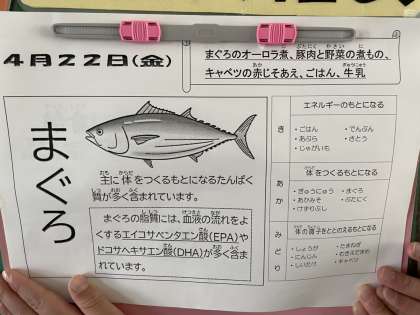 4月22日(金)
まぐろのオーロラ煮、豚肉と野菜の煮もの、
キャベツの赤じそあえ、ごはん、牛乳
まぐろ
主に体をつくるもとになるたんぱく
質が多く含まれています。
まぐろの脂質には、血液の流れをよ
くするエイコサペンタエン酸(EPA)や
ドコサヘキサエン酸(DHA)が多く含ま
れています。
き
エネルギーのもとになる
・ごはん ・でんぷん
・あぶら ・さとう
・じゃがいも
あか
体をつくるもとになる
・ぎゅうにゅう ・まぐろ
・あかみそ ・ぶたにく
・けずりぶし
みどり
体の調子をととのえるもとになる
・しょうが ・たまねぎ
・にんじん ・むきえだまめ
・しいたけ ・キャベツ